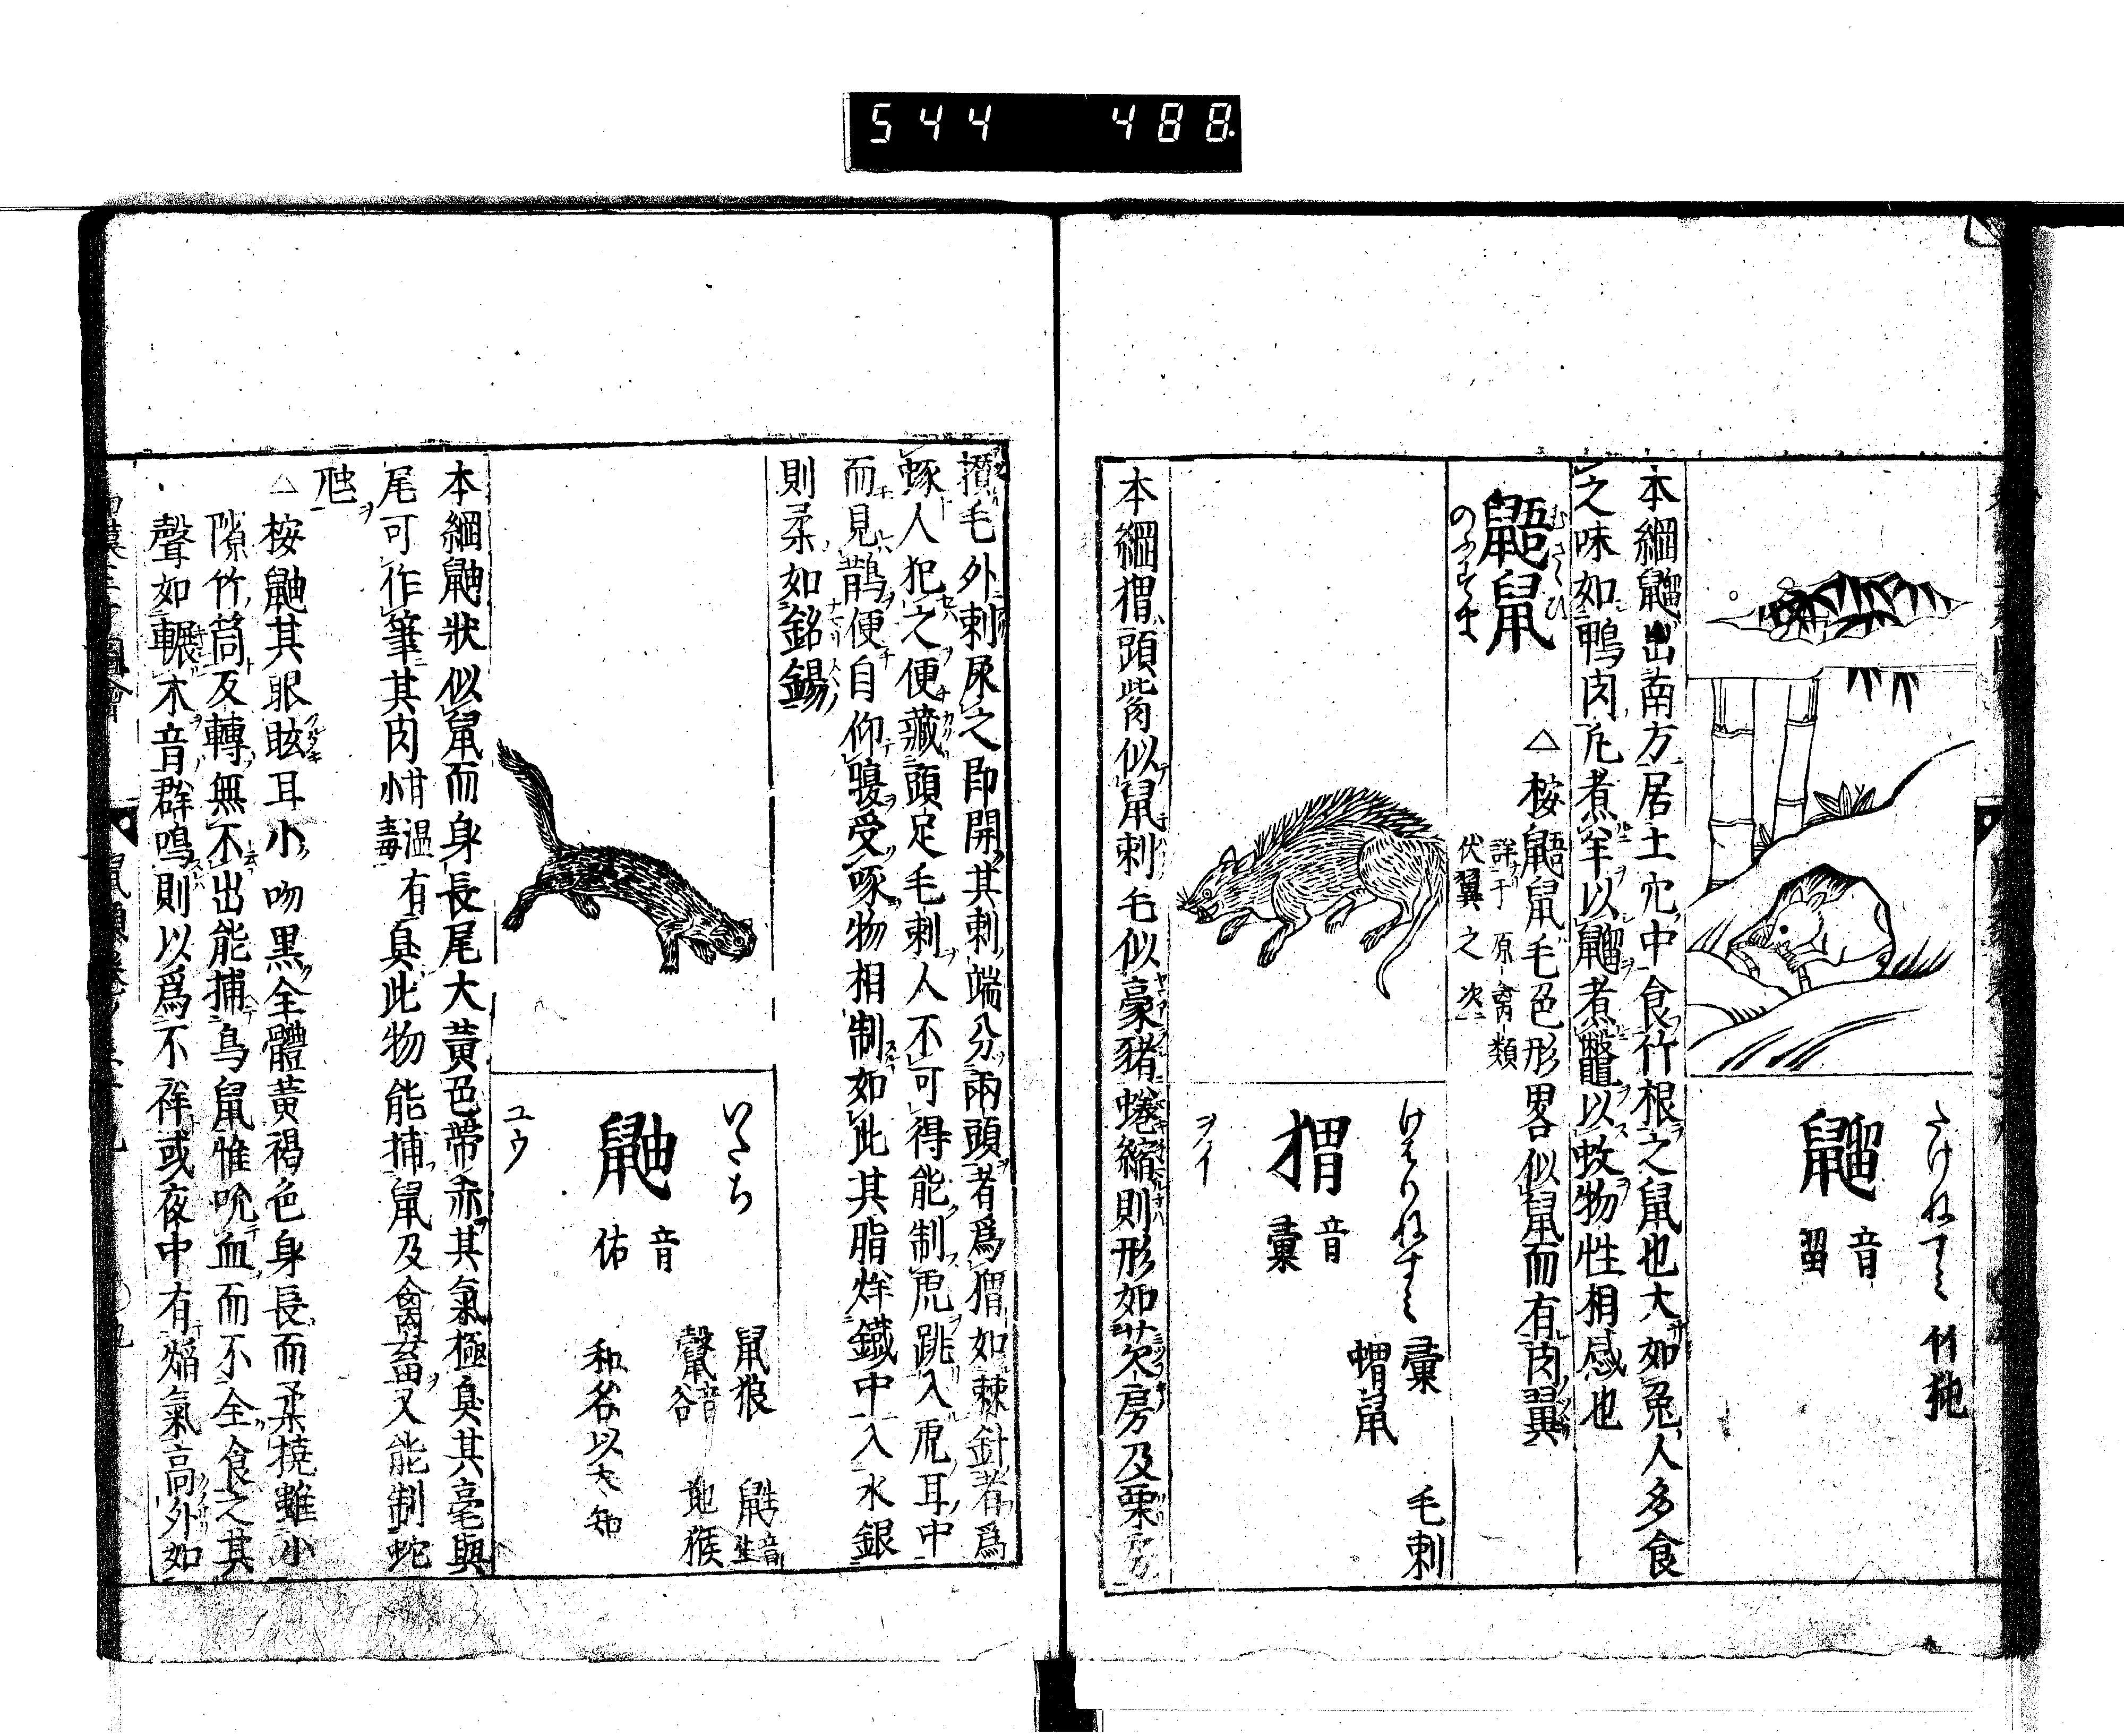 544 488
たけねすミ
竹㹠
鼺
音
留
本綱鼺出南方居土穴中食竹根之鼠也大如兎人多食
之味如鴨肉
むさゝひ
鼯鼠
のふすま
△按鼯鼠毛色形畧似鼠而有肉翼
詳于原禽類
伏翼之次
けはりねすミ
彙
毛刺
蝟鼠
猬
音
彙
ヲイ
本綱猬頭觜似鼠刺毛似豪豬蜷縮則形如芡房及栗房
攅毛外刺尿之即開其刺端分兩頭者爲猬如棘針者爲
蝯人犯之便藏頭足毛刺人不可得能制虎跳入虎耳中
而見鵲便自仰腹受啄物相制如此其脂烊鐵中入水銀
則柔如鉛錫
いたち
鼠狼
鼪
音
生
地猴
鼬
音
佑
和名以太知
ユウ
本綱鼬狀似鼠而身長尾大黃色帶赤其氣極臭其毫與
尾可作筆其肉
甘温
小毒
有臭此物能捕鼠及禽畜又能制蛇
虺
△按鼬其眼眩耳小吻黒全體黃褐色身長而柔撓雖小
隙竹筒反轉無不出能捕鳥鼠惟吮血而不全食之其
聲如輾木音群鳴則以爲不祥或夜中有熖氣高外如